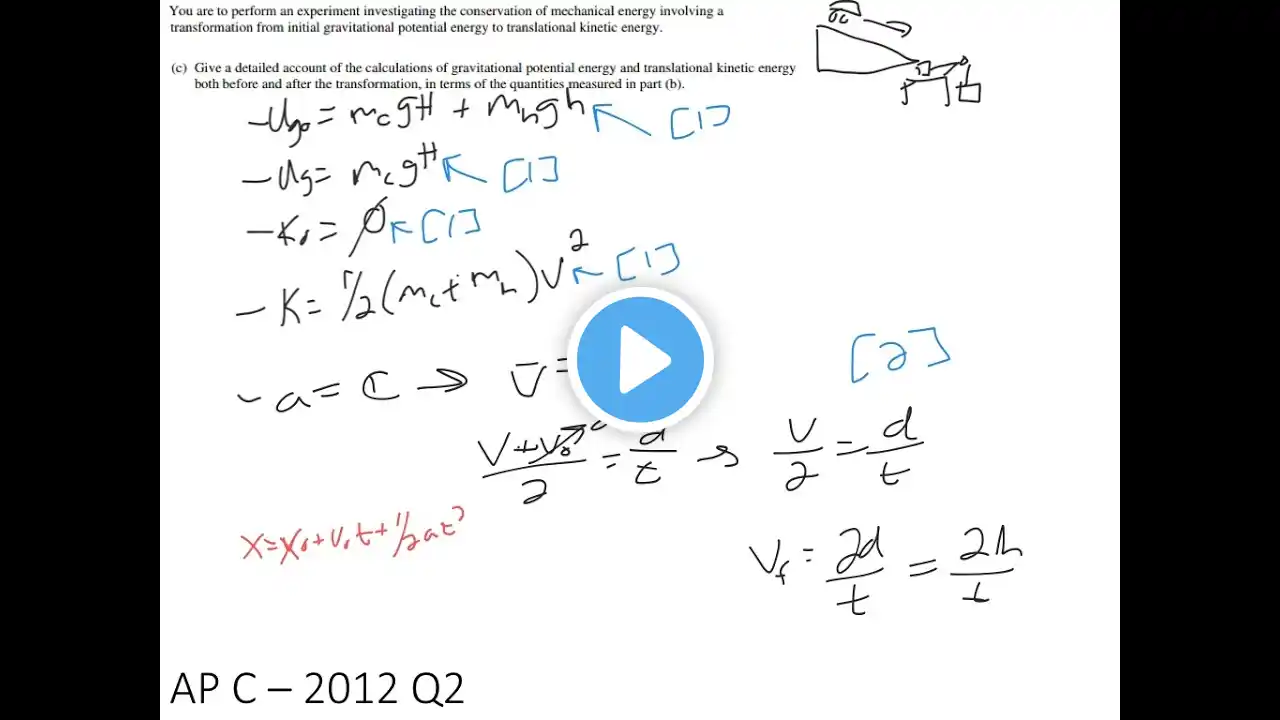 You are to perform an experiment investigating the conservation of mechanical energy involving a
transformation from initial gravitational potential energy to translational kinetic energy.
(c) Give a detailed account of the calculations of gravitational potential energy and translational kinetic energy
both before and after the transformation, in terms of the quantities measured in part (b).
- Ug₀ = m_c gH + m_h gh ← [1]
- Ug = m_c gH ← [1]
- K₀ = ∅ ← [1]
- K = 1/2 (m_c + m_h) v² ← [1]
- a = C → v̄ =
[2]
(v + v₀)/2 = d/t → v/2 = d/t
x = x₀ + v₀t + 1/2 at²
v_f = 2d/t = 2h/t
AP C – 2012 Q2